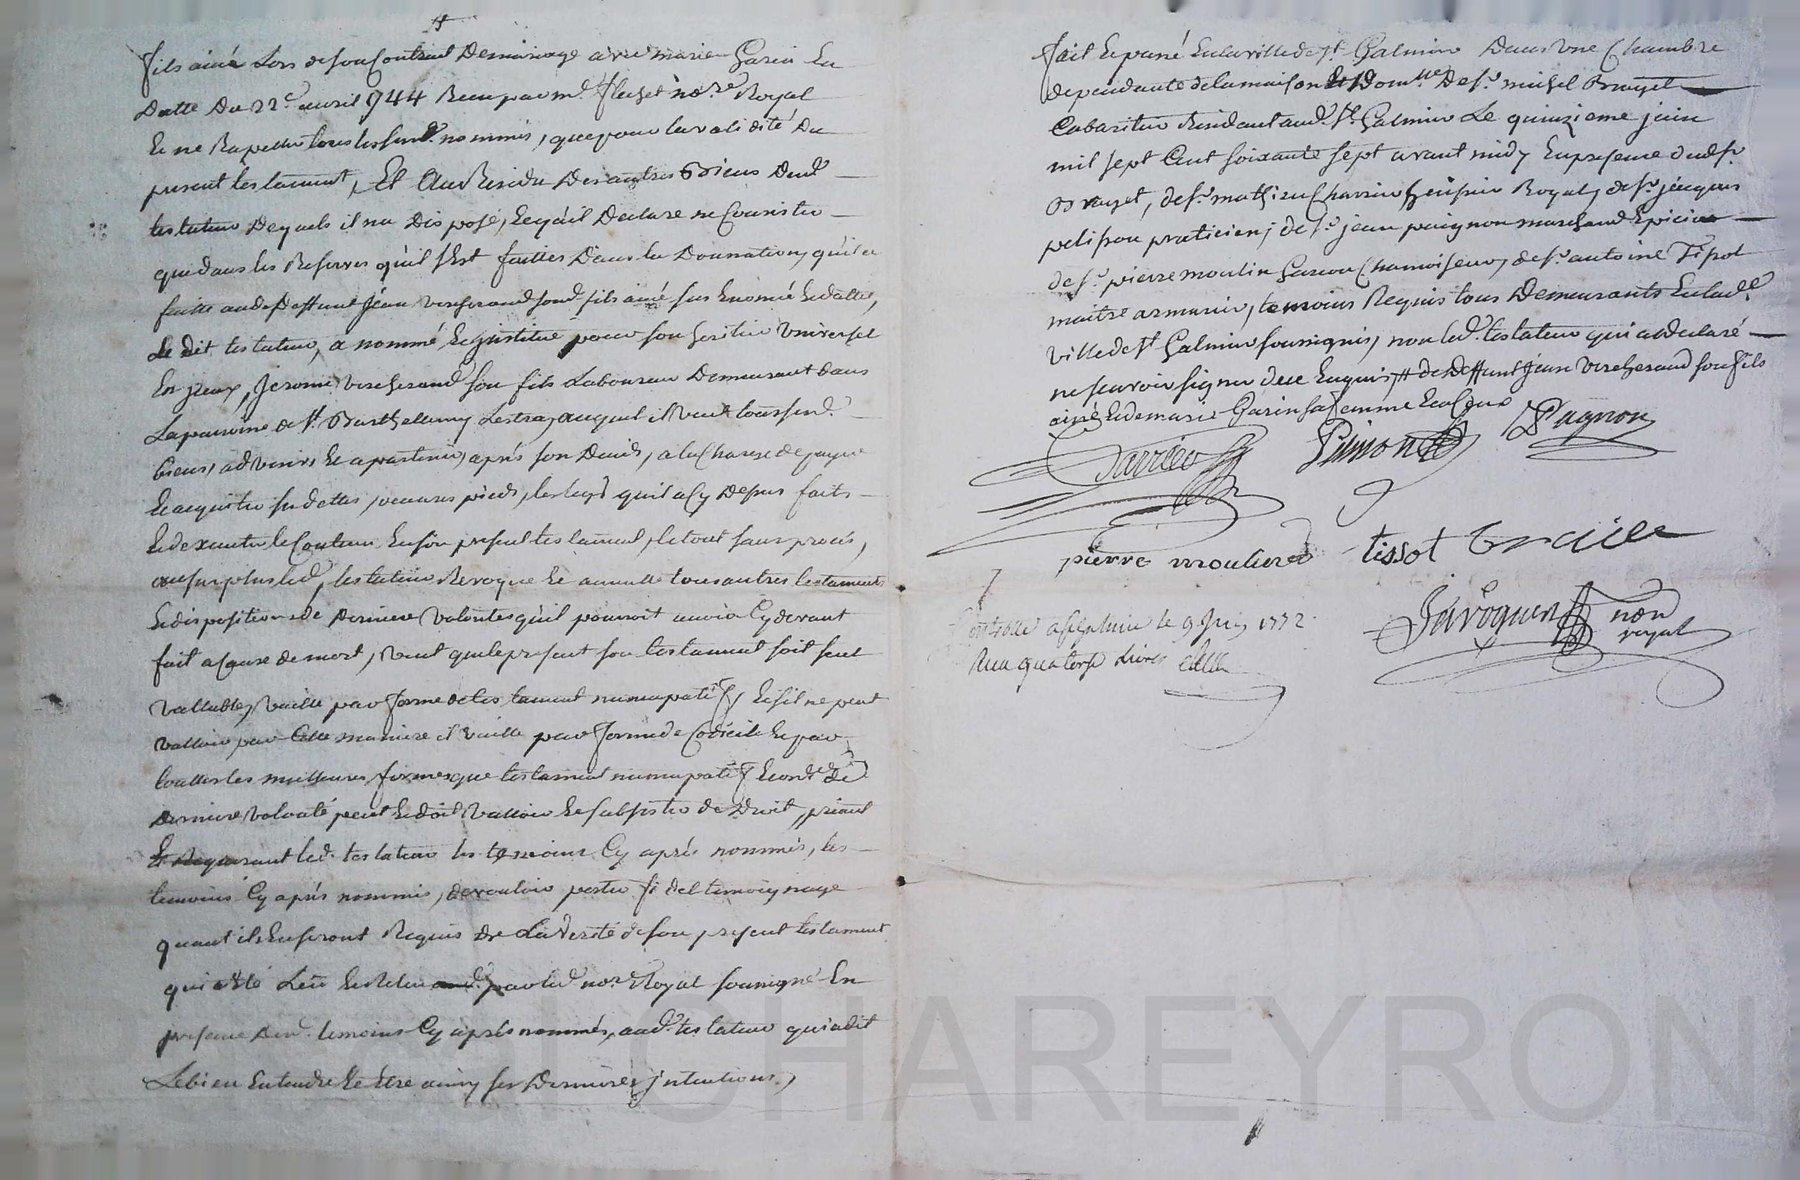 fils ainé Lors de son Contract De mariage avec marie Garin En
Datte Du 22e. avril 1744 Recu par me. notre. Royal
Et ne Rapeller tous les susd. nommés, que pour la validité Du
present testament, Et Au Residu Des autres Biens Dud
testateur Desquels il na Disposé, Lequel Declare ne Consister
que dans les Reserves qu'il s'Est faittes Dans la Donnation, qu'il a
faitte aud deffunt Jean Vercherand son fils ainé sus Enomé Et datté,
Le dit testateur, a nommé Et institué pour son heritier Universel
Jerome Vercherand son fils Laboureur Demeurant dans
La paroisse de St. Barthellemy Lestra, auquel il Veut tous sesd.
biens, advenir Et apartenir, après son Deceds, a la Charge de payer
Et acquitter ses dettes, oeuvres pieds, les legs qu'il a Cy Depus faits
Et dexecuter le Contenu En son present testament, le tout sans procès,
au surplus led. testateur Revoque Et annulle tous autres testaments
Et dispositions de Derniere Volontés qu'il pourroit avoir Cy devant
fait a Cause de mort, veut que le present son testament soit seul
Vallable, Vaille par forme de testament nuncupatif, Et s'il ne peut
Valloir par Cette maniere il Vaille par forme de Codicile Et par
touttes les meilleures formes que testament nuncupatif
Derniere Volonté peut Et doit Valloir Et subsister de Droit, priant
Et Requerant led. testateur les temoins Cy après nommés, les
temoins Cy après nommés, de vouloir porter fidel temoignage
quant ils En seront Requis De La Verité de son present testament
qui a été Leu Et Releu par led. notre. Royal soussigné En
presence Desd. temoins Cy après nommés, aud. testateur qui a dit
Le bien Entendre Et Etre ainsy ses Dernieres intentions,
fait Et passé En la ville de St. Galmier Dans Une Chambre
dependante de la maison Et Domlle. De sr. michel Brayet
Cabaretier Residant aud. St. Galmier Le quinzieme juin
mil sept Cent soixante sept avant midy En presence dud sr.
Brayet, de sr. mathieu Charrin huissier Royal, de sr. jacques
pelisson praticien, de sr. jean peignon marchand Epicier
de sr. pierre moulin Garcon Chamoiseur, de sr. antoine Tissot
maitre armurier, temoins Requis tous Demeurants En lad.
Ville de St. Galmier soussignés, non led. testateur qui a declaré
ne scavoir signer de ce Enquis, # dud deffunt Jean Vercherand son fils
ainé Et de marie Garin sa femme
pierre moulin tissot
Javogues
notre
royal
Controllé a St Galmier le 9 1772
Recu quatorse Livres